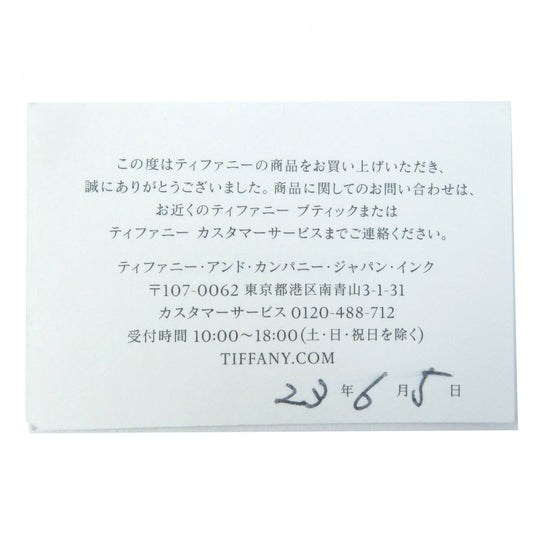 この度はティファニーの商品をお買い上げいただき、
誠にありがとうございました。商品に関してのお問い合わせは、
お近くのティファニー ブティックまたは
ティファニー カスタマーサービスまでご連絡ください。
ティファニー・アンド・カンパニー・ジャパン・インク
〒107-0062 東京都港区南青山3-1-31
カスタマーサービス 0120-488-712
受付時間 10:00～18:00(土・日・祝日を除く)
TIFFANY.COM
23 年 6 月 5 日